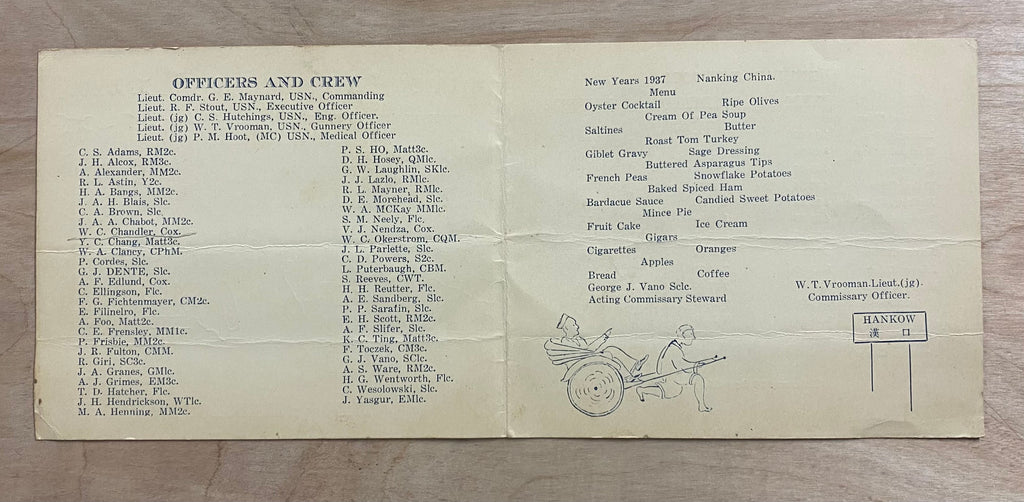 OFFICERS AND CREW
Lieut. Comdr. G. E. Maynard, USN., Commanding
Lieut. R. F. Stout, USN., Executive Officer
Lieut. (jg) C. S. Hutchings, USN., Eng. Officer.
Lieut. (jg) W. T. Vrooman, USN., Gunnery Officer
Lieut. (jg) P. M. Hoot, (MC) USN., Medical Officer
C. S. Adams, RM2c.
J. H. Alcox, RM3c.
A. Alexander, MM2c.
R. L. Astin, Y2c.
H. A. Bangs, MM2c.
J. A. H. Blais, Slc.
C. A. Brown, Slc.
J. A. A. Chabot, MM2c.
W. C. Chandler, Cox.
Y. C. Chang, Matt3c.
W. A. Clancy, CPhM.
P. Cordes, Slc.
G. J. DENTE, Slc.
A. F. Edlund, Cox.
C. Ellingson, Flc.
F. G. Fichtenmayer, CM2c.
E. Filinelro, Flc.
A. Foo, Matt2c.
C. E. Frensley, MM1c.
P. Frisbie, MM2c.
J. R. Fulton, CMM.
R. Giri, SC3c.
J. A. Granes, GMlc.
A. J. Grimes, EM3c.
T. D. Hatcher, Flc.
J. H. Hendrickson, WTlc.
M. A. Henning, MM2c.
P. S. HO, Matt3c.
D. H. Hosey, QMlc.
G. W. Laughlin, SKlc.
J. J. Lazlo, RMlc.
R. L. Mayner, RMlc.
D. E. Morehead, Slc.
W. A. MCKay MMlc.
S. M. Neely, Flc.
V. J. Nendza, Cox.
W. C. Okerstrom, CQM.
J. L. Parlette, Slc.
C. D. Powers, S2c.
L. Puterbaugh, CBM.
S. Reeves, CWT.
H. H. Reutter, Flc.
A. E. Sandberg, Slc.
P. P. Sarafin, Slc.
E. H. Scott, RM2c.
A. F. Slifer, Slc.
K. C. Ting, Matt3c.
F. Toczek, CM3c.
G. J. Vano, SClc.
A. S. Ware, RM2c.
H. G. Wentworth, Flc.
C. Wesolowski, Slc.
J. Yasgur, EMlc.
New Years 1937 Nanking China.
Menu
Oyster Cocktail Ripe Olives
Cream Of Pea Soup
Saltines Butter
Roast Tom Turkey
Giblet Gravy Sage Dressing
Buttered Asparagus Tips
French Peas Snowflake Potatoes
Baked Spiced Ham
Bardacue Sauce Candied Sweet Potatoes
Mince Pie
Fruit Cake Ice Cream
Gigars
Cigarettes Oranges
Apples
Bread Coffee
George J. Vano Sclc.
Acting Commissary Steward
W. T. Vrooman.Lieut.(jg).
Commissary Officer.
HANKOW
漢 口